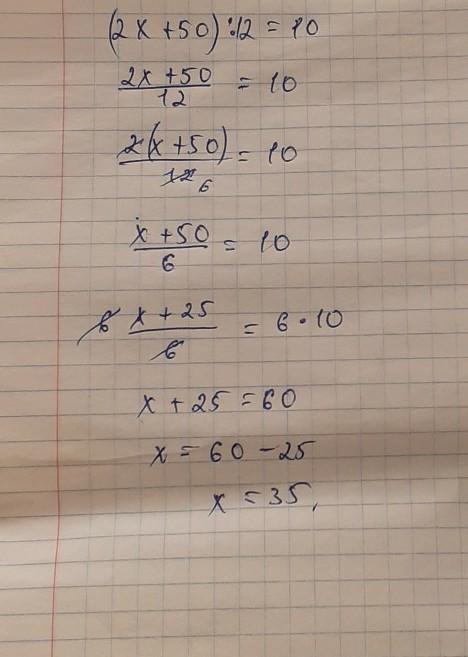 (2x+50):12=10
2x+50/12 = 10
2(x+50)/12 6 = 10
x+50/6 = 10
6 x+25/6 = 6·10
x+25=60
x=60-25
x=35,